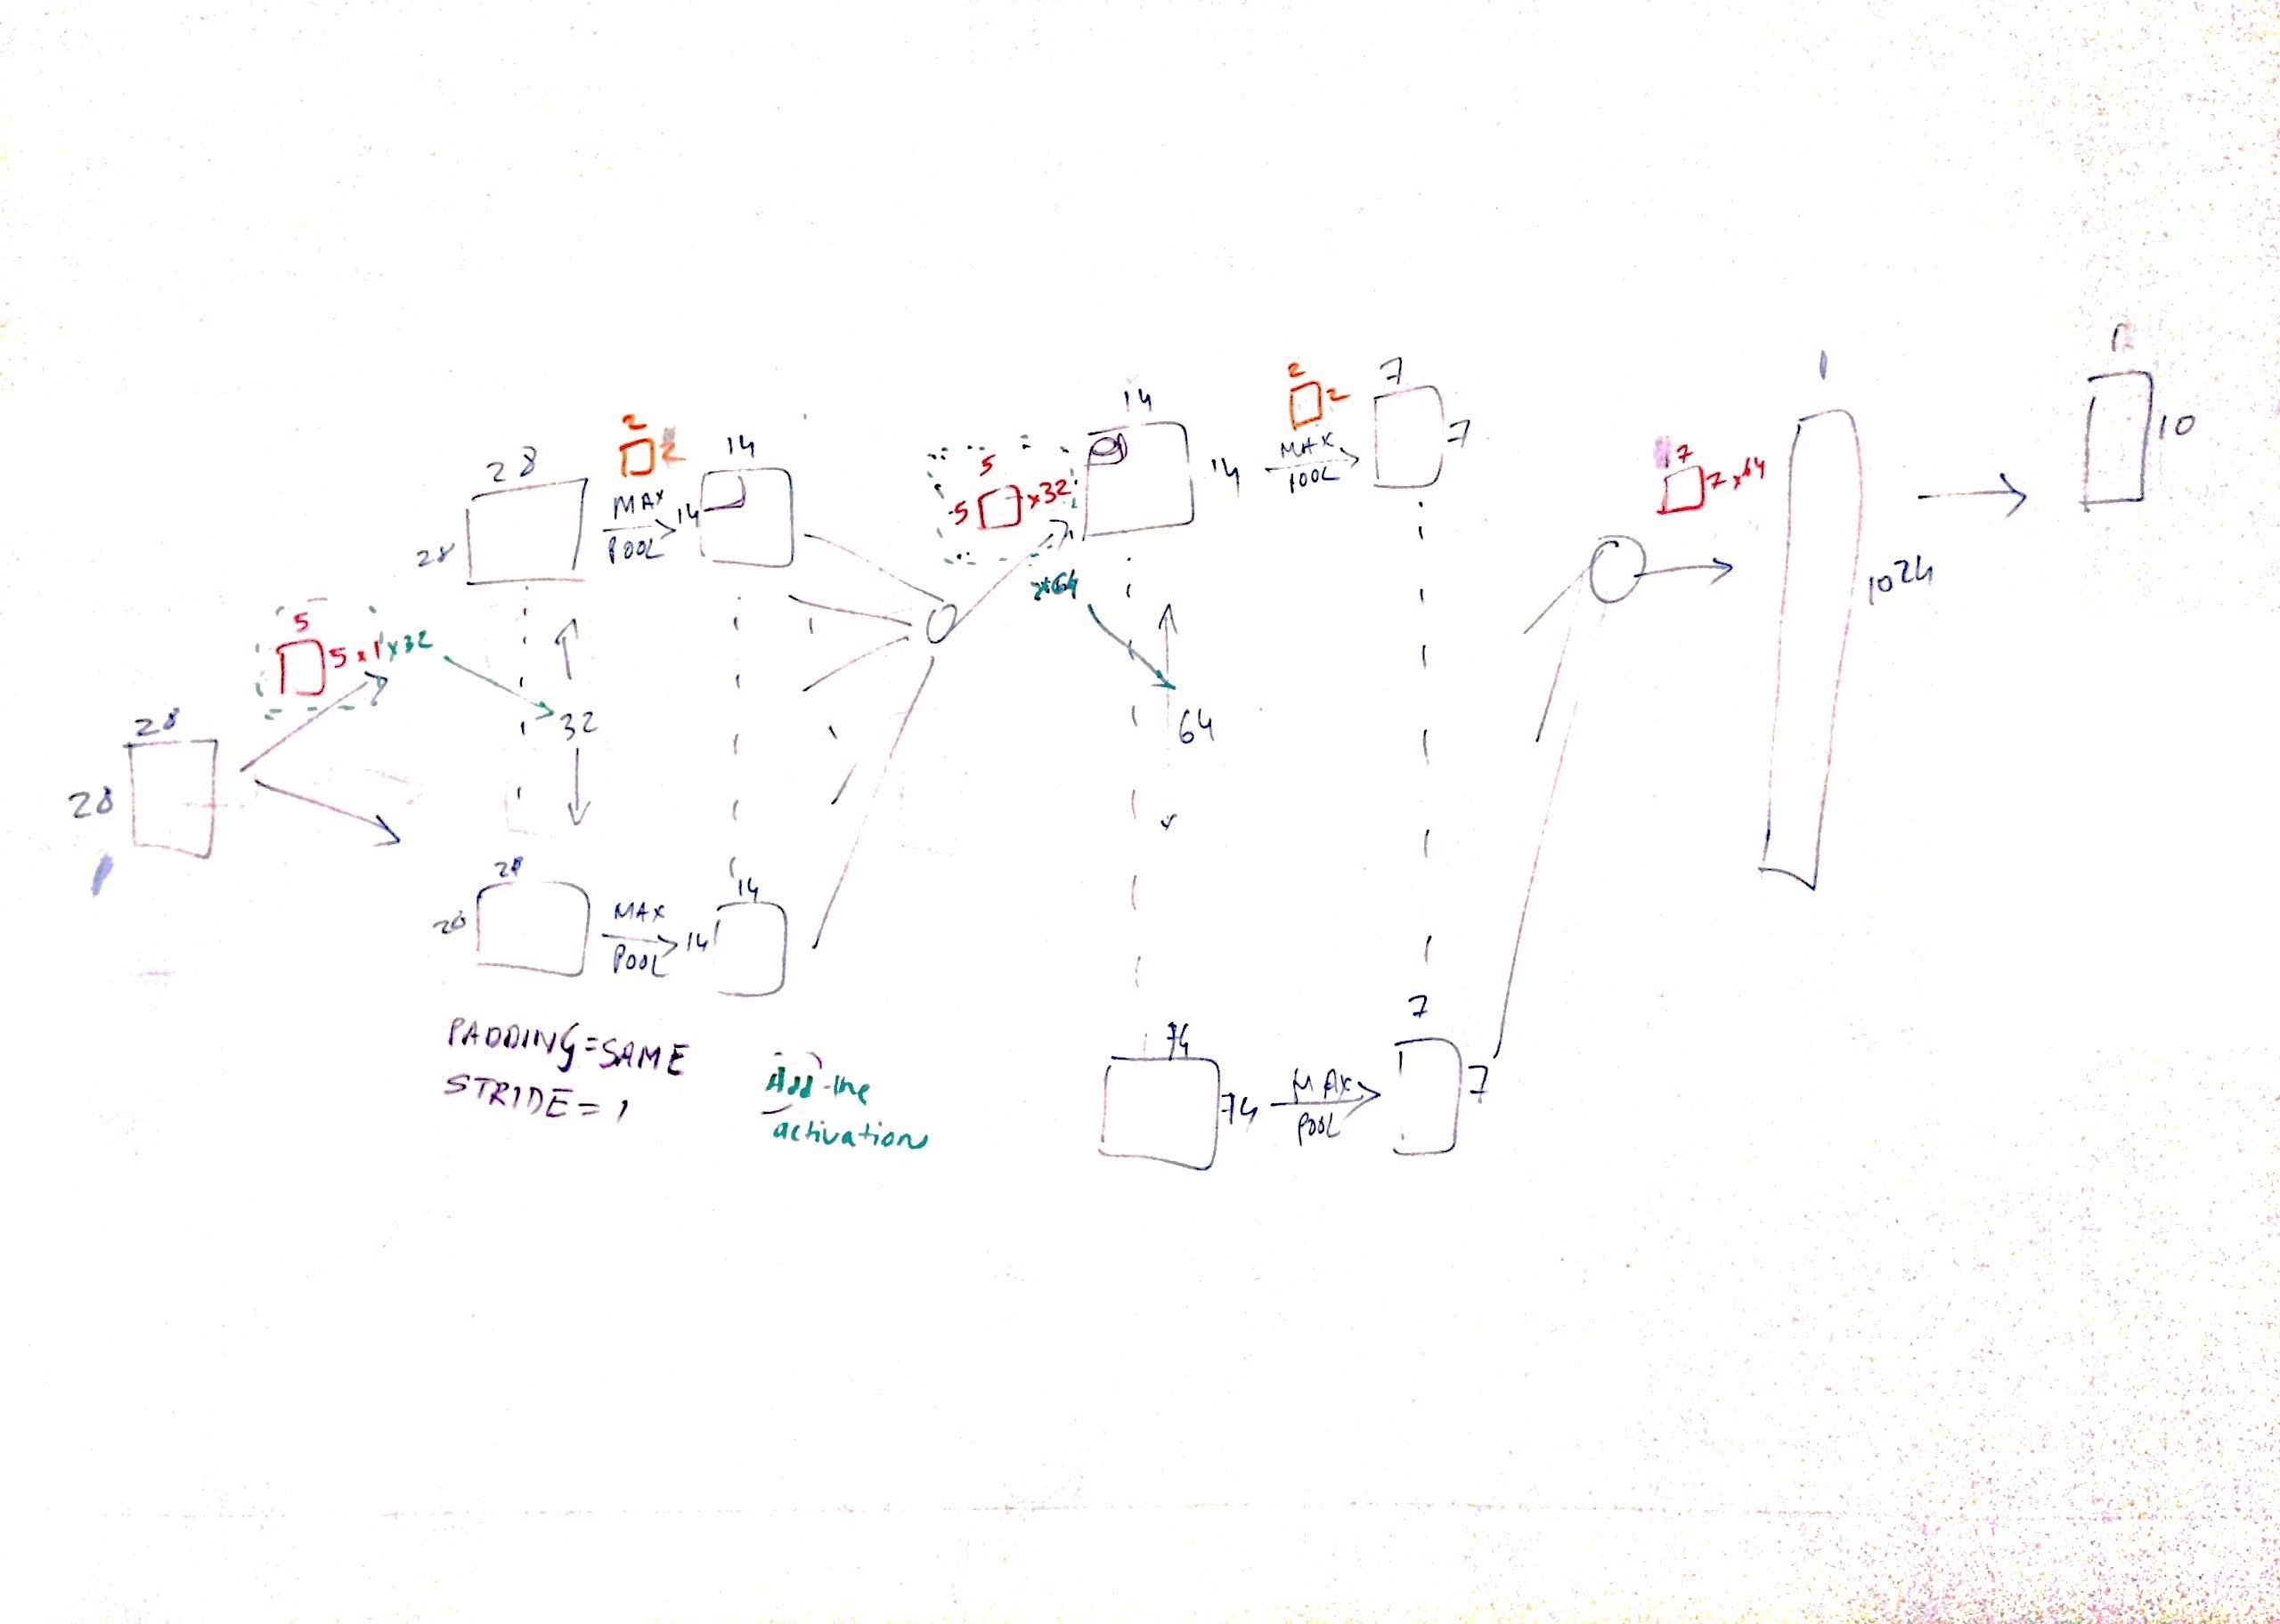 28
28
5
5 x 1 x 32
28
28
32
28
28
2
2
MAX
POOL
14
14
MAX
POOL
14
14
PADDING=SAME
STRIDE=1
Add the
activation
5
5
x32
x64
14
14
64
74
74
2
2
MAX
POOL
7
7
MAX
POOL
7
7
7
7x64
1
1024
10